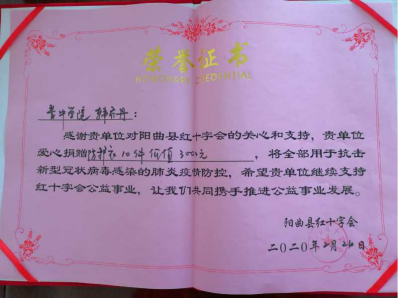 荣誉证书
HONORARY CREDENTIAL
晋中学院
感谢贵单位对阳曲县红十字会的关心和支持，贵单位
爱心捐赠防护衣10件 价值3000元，将全部用于抗击
新型冠状病毒感染的肺炎疫情防控，希望贵单位继续支持
红十字会公益事业，让我们共同携手推进公益事业发展。
阳曲县红十字会
二〇二〇年2月26日